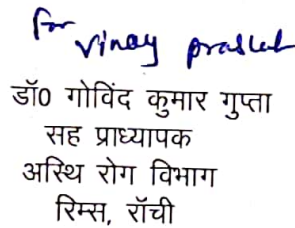 for
vinay
डॉ0 गोविंद कुमार गुप्ता
सह प्राध्यापक
अस्थि रोग विभाग
रिम्स, रॉची